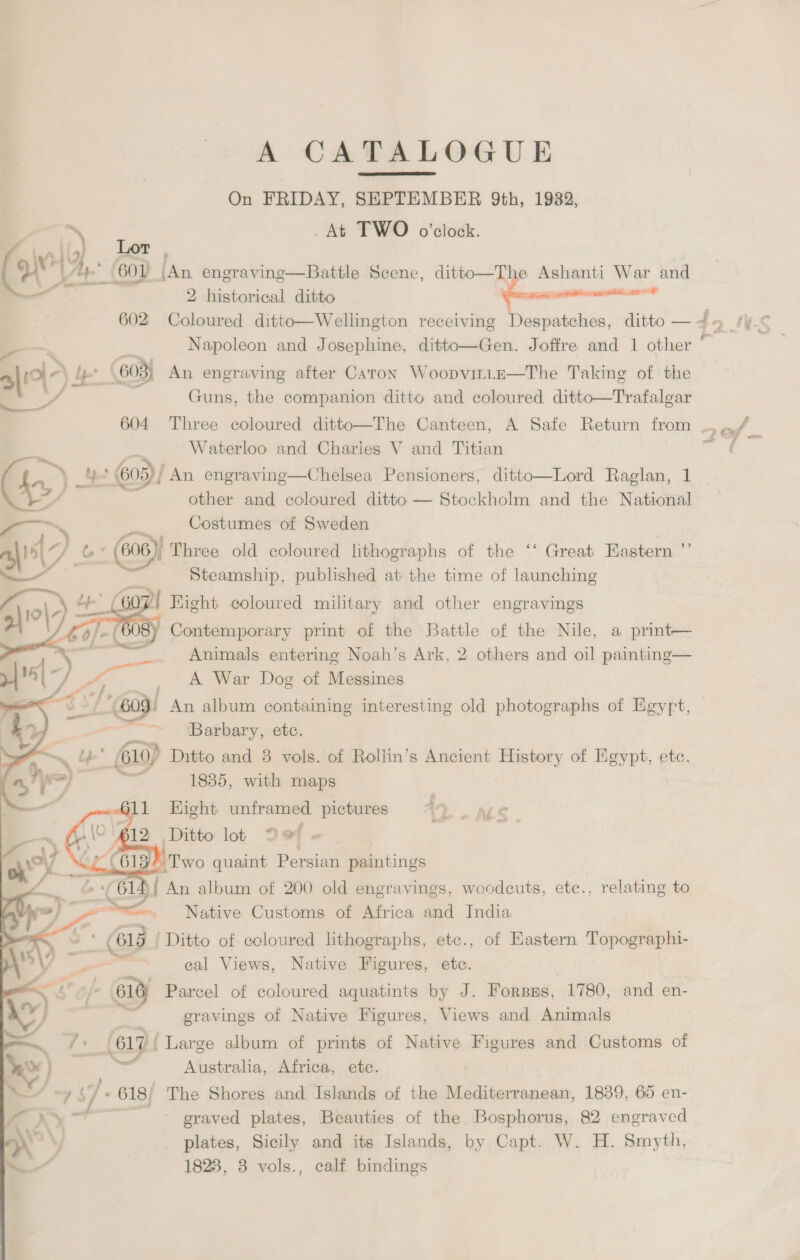 A CATALOGUE
On FRIDAY, SEPTEMBER 9th, 1932,
At TWO o'clock.
LOT
601 An engraving—Battle Scene, ditto—The Ashanti War and
2 historical ditto
602 Coloured ditto—Wellington receiving Despatches, ditto—
Napoleon and Josephine, ditto—Gen. Joffre and 1 other
603 An engraving after CATON WOODVILLE—The Taking of the
Guns, the companion ditto and coloured ditto—Trafalgar
604 Three coloured ditto—The Canteen, A Safe Return from
Waterloo and Charles V and Titian
605 An engraving—Chelsea Pensioners, ditto—Lord Raglan, 1
other and coloured ditto — Stockholm and the National
Costumes of Sweden
606 Three old coloured lithographs of the “ Great Eastern ”
Steamship, published at the time of launching
607 Eight coloured military and other engravings
608 Contemporary print of the Battle of the Nile, a print—
Animals entering Noah's Ark, 2 others and oil painting—
A War Dog of Messines
609 An album containing interesting old photographs of Egypt,
Barbary, etc.
610 Ditto and 3 vols. of Rollin's Ancient History of Egypt, etc.
1835, with maps
611 Eight unframed pictures
612 Ditto lot
613 Two quaint Persian paintings
614 An album of 200 old engravings, woodcuts, etc., relating to
Native Customs of Africa and India
615 Ditto of coloured lithographs, etc., of Eastern Topographi-
cal Views, Native Figures, etc.
616 Parcel of coloured aquatints by J. FORBES, 1780, and en-
gravings of Native Figures, Views and Animals
617 Large album of prints of Native Figures and Customs of
Australia, Africa, etc.
618 The Shores and Islands of the Mediterranean, 1839, 65 en-
graved plates, Beauties of the Bosphorus, 82 engraved
plates, Sicily and its Islands, by Capt. W. H. Smyth,
1823, 3 vols., calf bindings